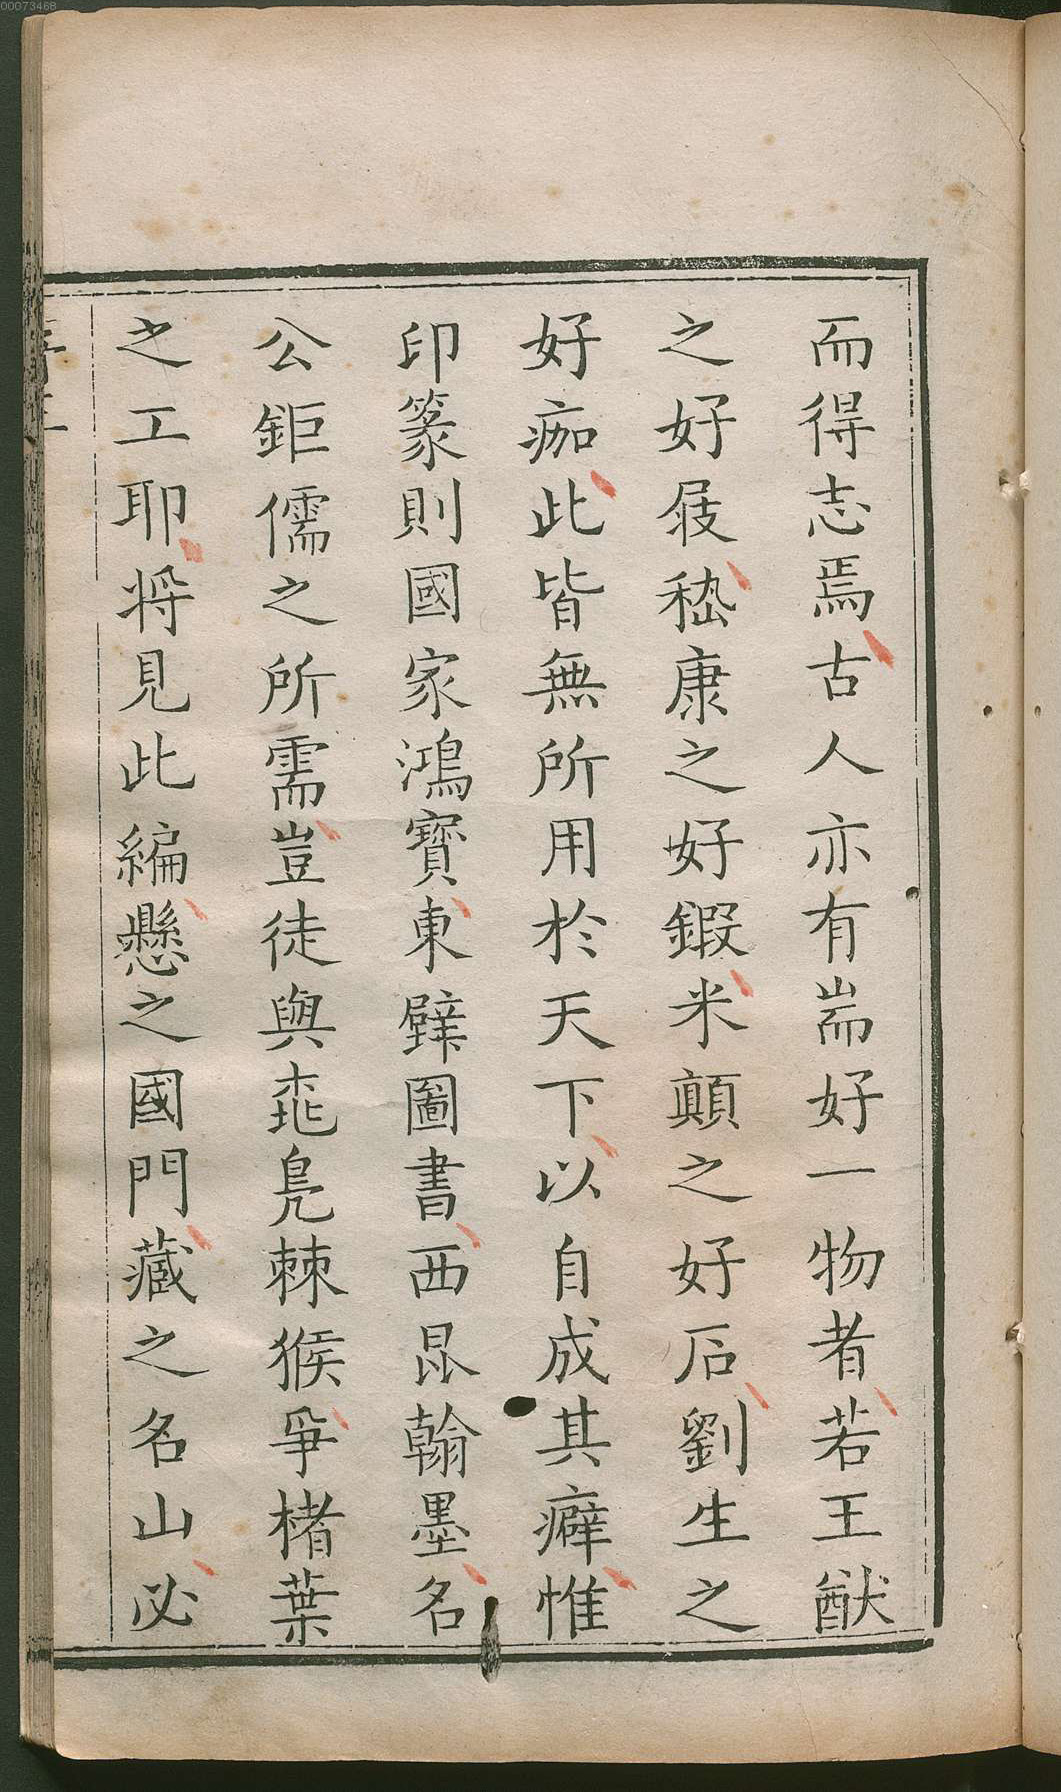 00073468
而得志焉古人亦有耑好一物者若王猷
之好屐嵇康之好鍜米顛之好石劉生之
好痂此皆無所用於天下以自成其癖惟
印篆則國家鴻寳東壁圖書西昆翰墨名
公鉅儒之所需豈徒與桅鳧棘猴爭楮葉
之工耶將見此編懸之國門藏之名山必